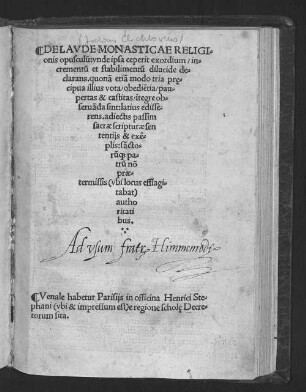 (Judocus Clichtoveus)
¶DE LAVDE MONASTICAE RELIGI
onis opusculū: vnde ipsa ceperit exordium / in
crementū et stabilimentū dilucide de
clarans. quonā etiā modo tria pre
cipua illius vota / obedietia / pau
pertas & castitas: ītegre ob
seruāda sint: latius edisse
rens. adiectis passim
sacræ scripturæ sen
tentijs & exē
plis: sāctō
rūq; patrū
nō
præ
termissis (vbi locus efflagi
tabat)
autho
ritati
bus.
Ad vsum fratr̄ Himmerode
¶Venale habetur Parisijs in officina Henrici Ste
phani (vbi & impressum est) e regione scholę Decre
torum sita.